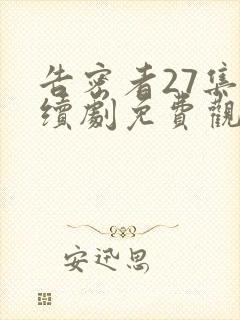 告密者27集
續劇免費觀
安迅思